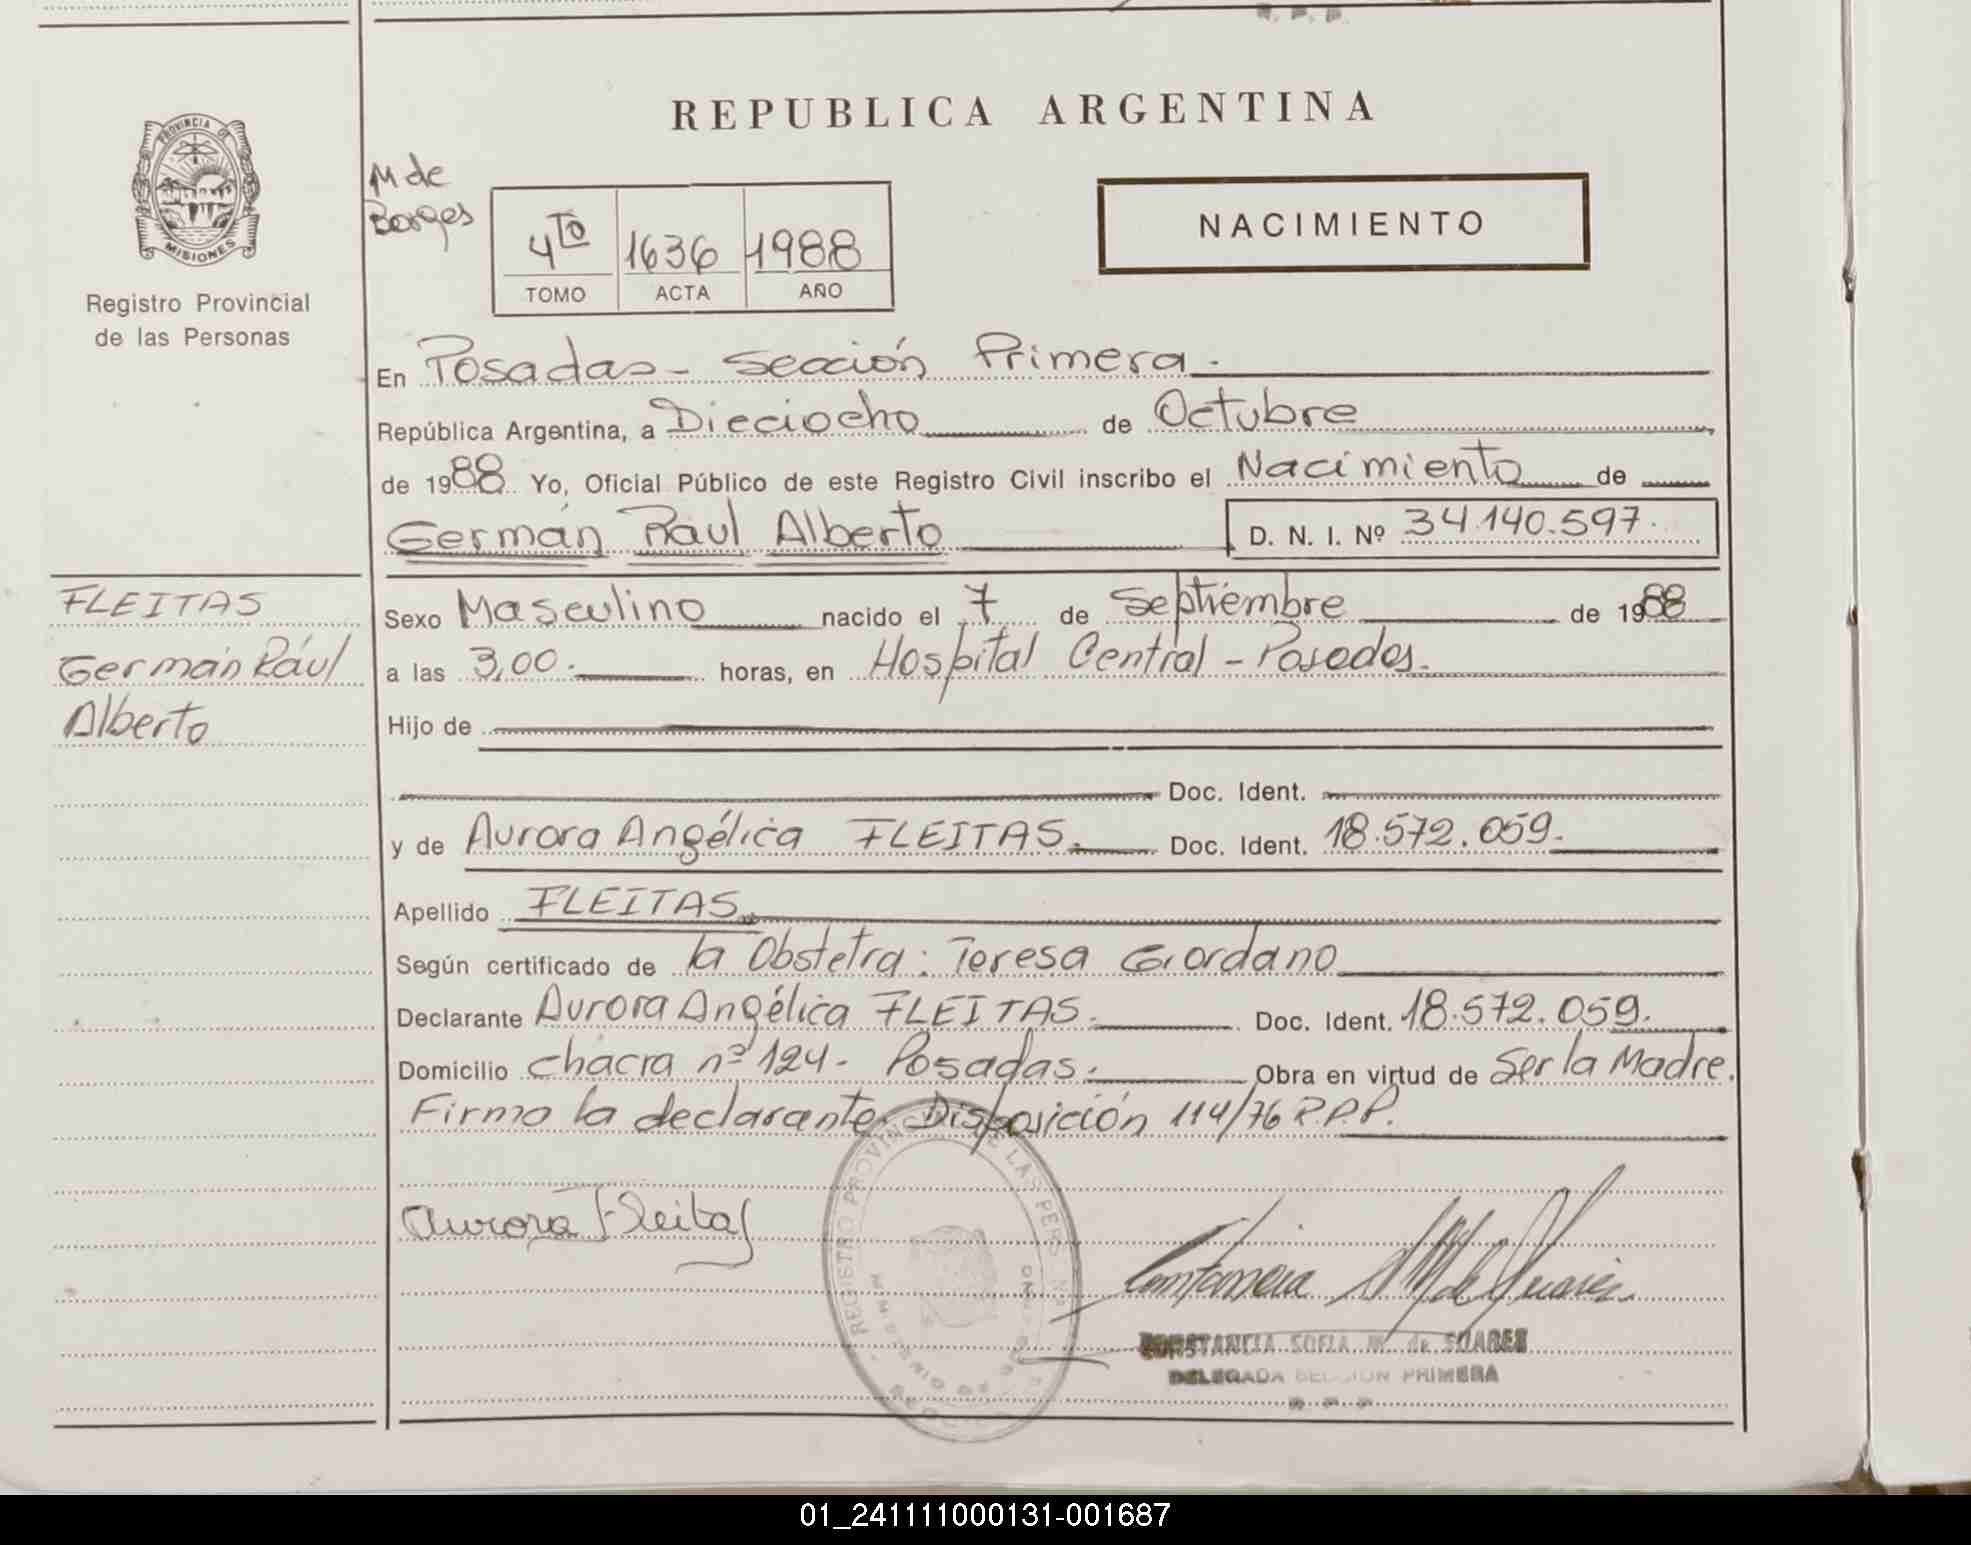 REPUBLICA ARGENTINA
PROVINCIA DE
MISIONES
Registro Provincial
de las Personas
M de
Borges
4to 1636 1988
TOMO ACTA AÑO
NACIMIENTO
En Posadas - Sección Primera.
República Argentina, a Dieciocho de Octubre
de 1988 Yo, Oficial Público de este Registro Civil inscribo el Nacimiento de
Germán Raul Alberto D. N. I. Nº 34.140.597.
FLEITAS
Germán Rául
Alberto
Sexo Masculino nacido el 7 de Septiembre de 1988
a las 3,00. horas, en Hospital Central - Posadas.
Hijo de
Doc. Ident.
y de Aurora Angélica FLEITAS. Doc. Ident. 18.572.059.
Apellido FLEITAS
Según certificado de la Obstetra: Teresa Giordano
Declarante Aurora Angélica FLEITAS. Doc. Ident. 18.572.059.
Domicilio chacra nº 124 - Posadas. Obra en virtud de Ser la Madre.
Firma la declarante. Disposición 114/76 R.P.P.
Aurora Fleitas
REGISTRO PROVINCIAL DE LAS PERSONAS
Constancia S M de Suarez
CONSTANCIA SOFIA M. de SUAREZ
DELEGADA SECCION PRIMERA
R. P. P.
01_241111000131-001687